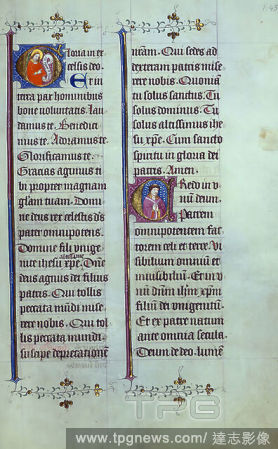 loria in ex
celsis deo.
Et in
terra pax hominibus
bone voluntatis. Lau
damus te. Benedici
mus te. Adoramus te.
Glorificamus te.
Gracias agimus ti
bi propter magnam
gl'am tuam. Domi
ne deus rex celestis d's
pater omnipotens.
Domine fili unige
nite ihesu xpe. Dn'e
altissime
deus agnus dei filius
patris. Qui tollis
peccata mu'di mise
rere nobis. Qui tol
lis peccata mundi.
suscipe deprecatione'
n'ram. Qui sedes ad
dexteram patris mise
rere nobis. Quonia'
tu solus sanctus. Tu
solus dominus. Tu
solus altissimus ihe
su xpe. Cum sancto
spiritu in gloria dei
patris. Amen.
Credo in v
nu' deum.
Patrem
omnipotentem fac
torem celi et terre. Vi
sibilium omnium et
invisibiliu'. Et in v
nu' dn'm ihm' xpm'
filiu' dei unigenitu'.
Et ex patre natum
ante omnia secula.
Deum de deo. lume'
TPG
www.tpgnews.com/ 達志影像